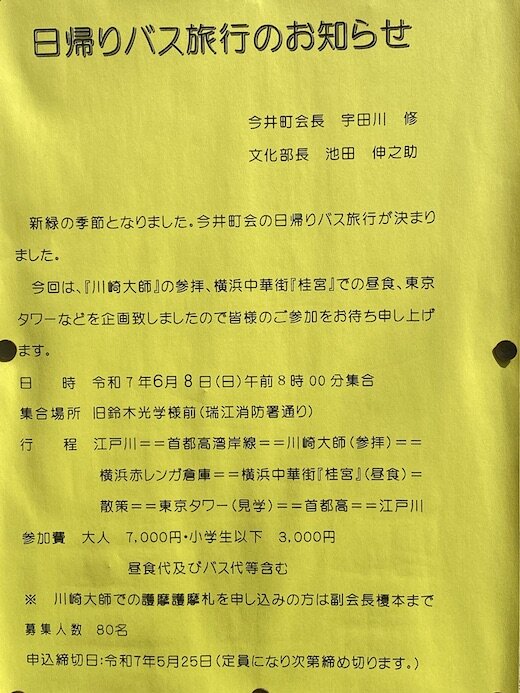 日帰りバス旅行のお知らせ
今井町会長　宇田川　修
文化部長　池田　伸之助
新緑の季節となりました。今井町会の日帰りバス旅行が決まり
ました。
今回は、『川崎大師』の参拝、横浜中華街『桂宮』での昼食、東京
タワーなどを企画致しましたので皆様のご参加をお待ち申し上げ
ます。
日　時　令和7年6月8日(日)午前8時00分集合
集合場所　旧鈴木光学様前(瑞江消防署通り)
行　程　江戸川==首都高湾岸線==川崎大師(参拝)==
横浜赤レンガ倉庫==横浜中華街『桂宮』(昼食)=
散策==東京タワー(見学)==首都高==江戸川
参加費　大人　7,000円・小学生以下　3,000円
昼食代及びバス代等含む
※　川崎大師での護摩護摩札を申し込みの方は副会長榎本まで
募集人数　80名
申込締切日:令和7年5月25日(定員になり次第締め切ります。)